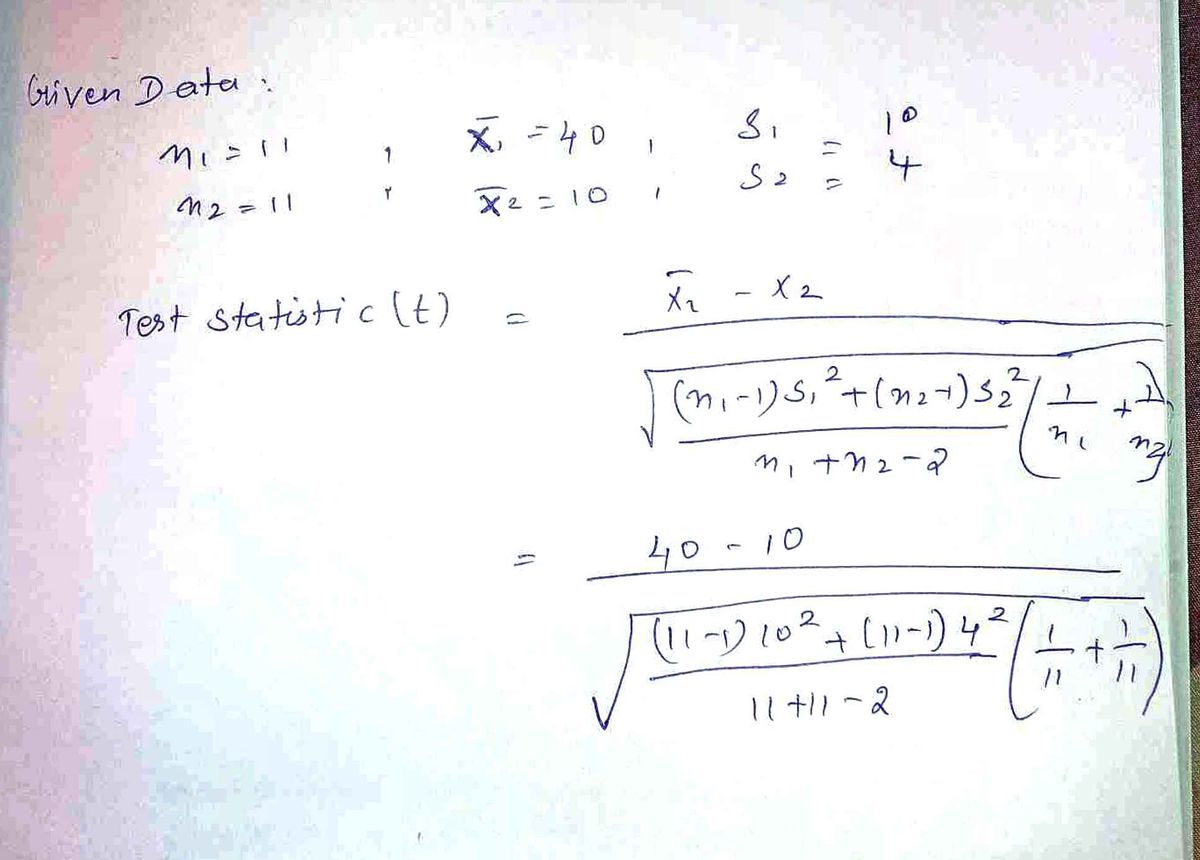 Given Data :
n1 = 11 , X̄1 = 40 , S1 = 10
n2 = 11 , X̄2 = 10 , S2 = 4
Test statistic (t) = X̄1 - X2
√ (n1-1) S1² + (n2-1) S2² ( 1/n1 + 1/n2 )
n1 + n2 - 2
= 40 - 10
√ (11-1) 10² + (11-1) 4² ( 1/11 + 1/11 )
11 + 11 - 2